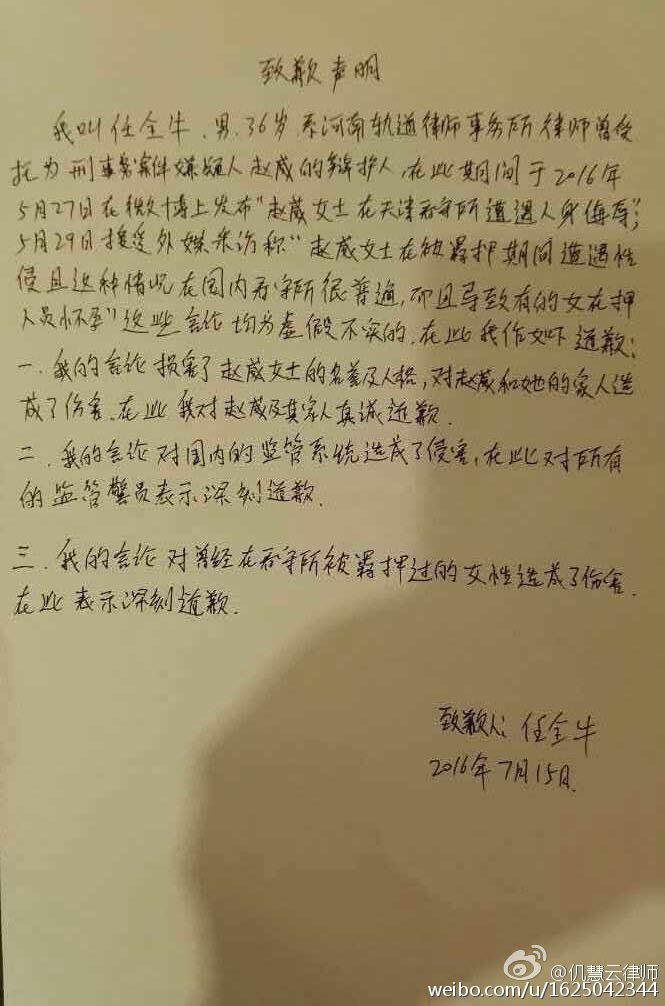 致歉声明
我叫任全牛、男、36岁系河南轨道律师事务所律师曾受
托为刑事案件嫌疑人赵威的辩护人,在此期间于2016年
5月27日在微博上发布"赵葳女士在天津看守所遭遇人身侮辱";
5月29日接受外媒采访称"赵葳女士在被羁押期间遭遇性
侵且这种情况在国内看守所很普遍,而且导致有的女在押
人员怀孕"这些言论均为虚假不实的.在此我作如下道歉:
一.我的言论损害了赵葳女士的名誉及人格,对赵葳和她的家人造
成了伤害.在此我对赵葳及其家人真诚道歉.
二.我的言论对国内的监管系统造成了侵害,在此对所有
的监管警员表示深刻道歉.
三.我的言论对曾经在看守所被羁押过的女性造成了伤害.
在此表示深刻道歉.
致歉人:任全牛
2016年7月15日.
@仉慧云律师
weibo.com/u/1625042344